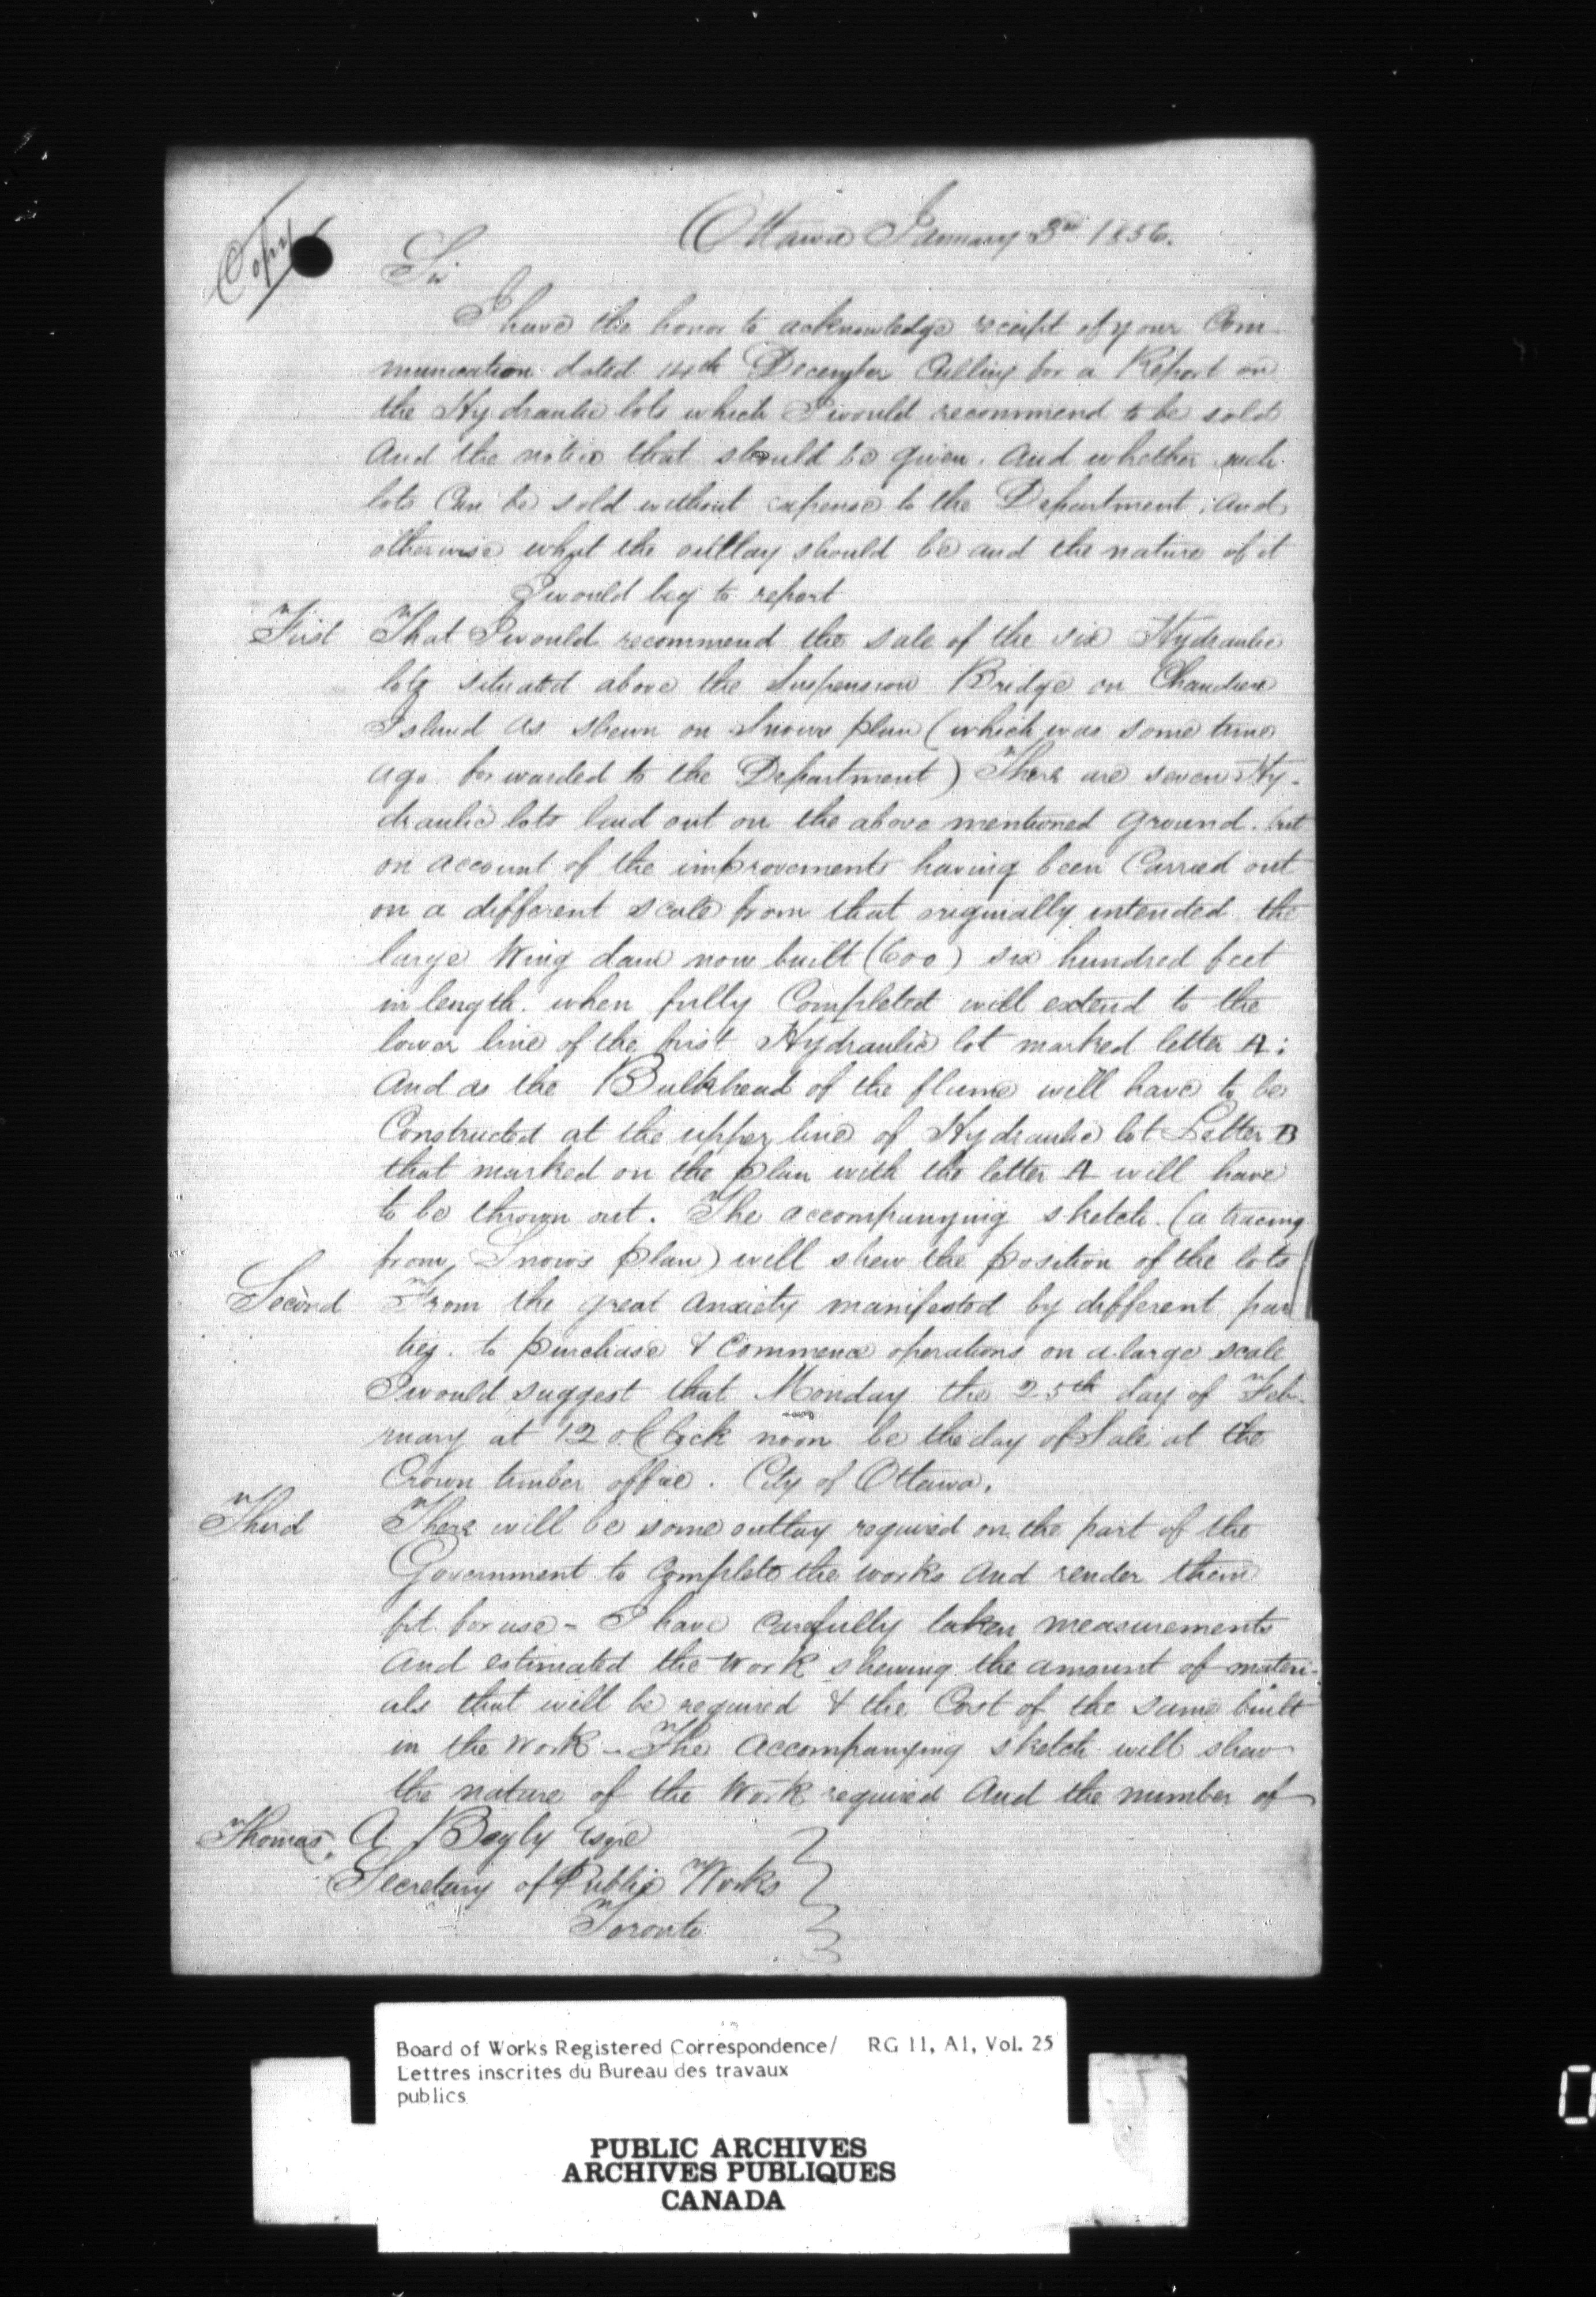 Copy
Ottawa January 3rd 1856.
Sir
I have the honor to acknowledge receipt of your Com-
munication dated 14th December Calling for a Report on
the Hydraulic lots which I would recommend to be sold
And the notice that should be given. And whether such
lots Can be sold without expense to the Department, and
otherwise what the outlay should be and the nature of it
I would beg to report
First That I would recommend the sale of the six Hydraulic
lots situated above the Suspension Bridge on Chaudiere
Island as shewn on Snows plan (which was some time
ago forwarded to the Department) There are seven Hy-
draulic lots laid out on the above mentioned ground. but
on account of the improvements having been Carried out
on a different scale from that originally intended the
large Wing dam now built (600) six hundred feet
in length. when fully Completed will extend to the
lower line of the first Hydraulic lot marked letter A:
And as the Bulkhead of the flume will have to be
Constructed at the upper line of Hydraulic lot Letter B
that marked on the plan with the letter A will have
to be thrown out. The accompanying sketch. (a tracing
from Snow's plan) will shew the position of the lots
Second From the great anxiety manifested by different par
ties. to purchase & Commence operations on a large scale
I would suggest that Monday the 25th day of Feb-
ruary at 12 oClock noon be the day of Sale at the
Crown timber office. City of Ottawa.
Third There will be some outlay required on the part of the
Government to Complete the works and render them
fit for use - I have Carefully taken measurements
And estimated the Work shewing the amount of materi-
als that will be required & the Cost of the same built
in the Work - The Accompanying sketch will shew
the nature of the Work required And the number of
Thomas A Begly Esqre
Secretary of Public Works
Toronto
Board of Works Registered Correspondence/ RG 11, A1, Vol. 25
Lettres inscrites du Bureau des travaux
publics
PUBLIC ARCHIVES
ARCHIVES PUBLIQUES
CANADA